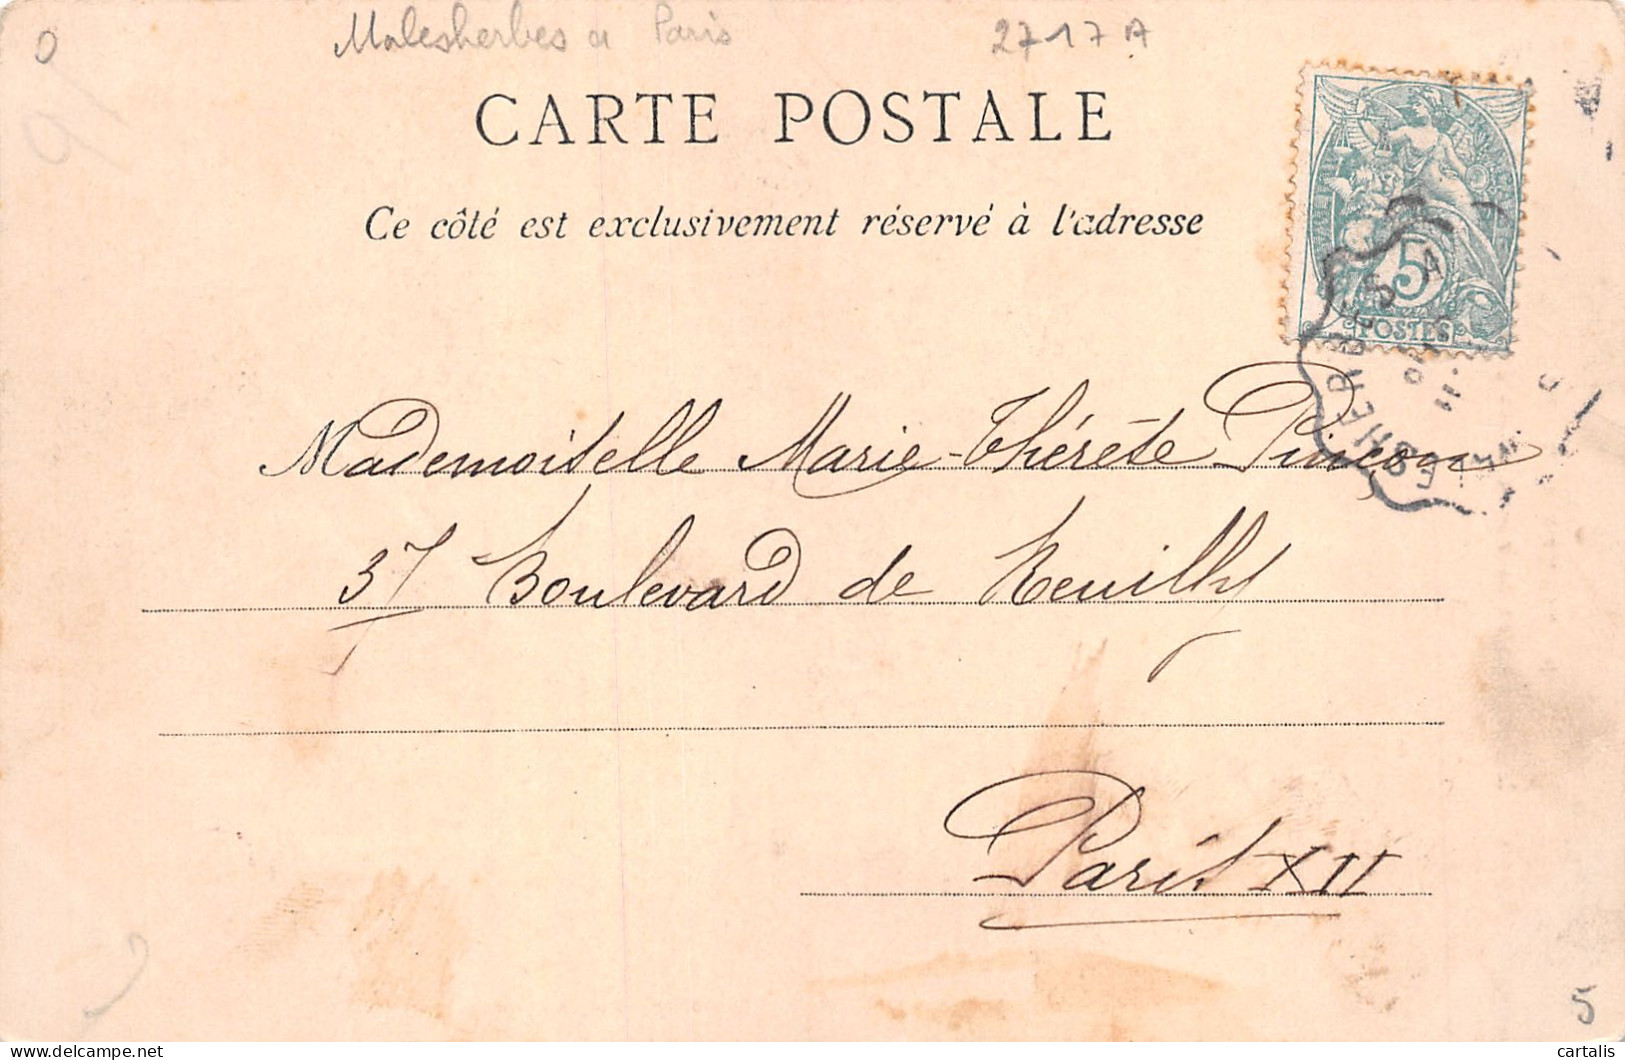 0
Malesherbes a Paris
2717 A
CARTE POSTALE
Ce côté est exclusivement réservé à l'adresse
5
POSTES
Mademoiselle Marie-Thérèse
37 Boulevard de Reuilly
Paris XII
5
cartalis